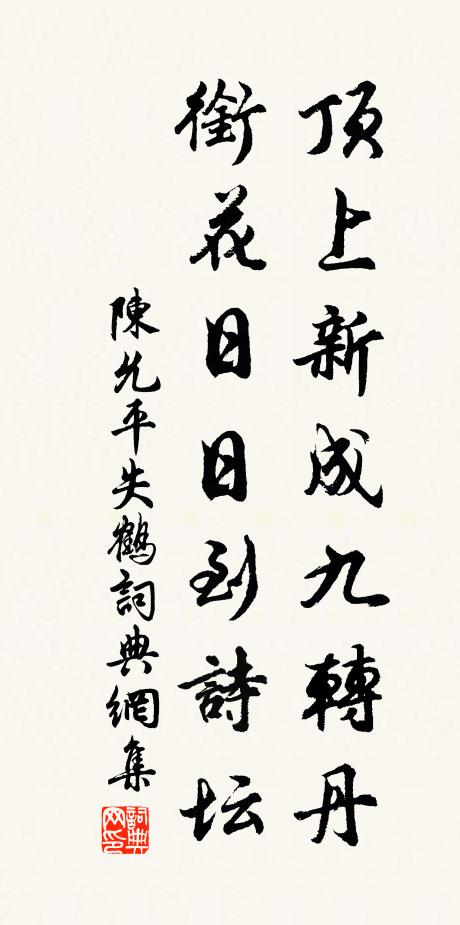 頂上新成九轉丹
銜花日日到詩坛
陳允平失鶴詞典網集
詞典网印